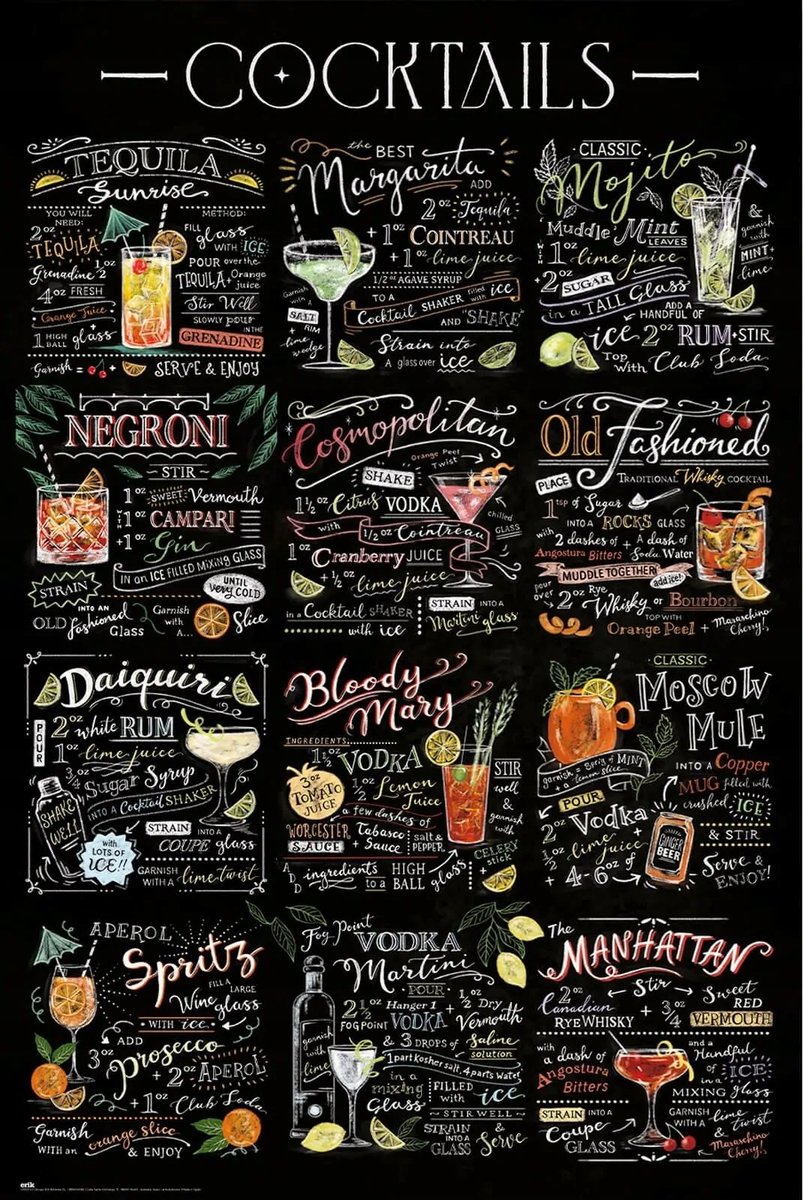 COCKTAILS
TEQUILA
Sunrise
YOU WILL
NEED:
2oz
TEQUILA
Grenadine 1/2 oz
4oz FRESH
Orange Juice
1 HIGH BALL glass
METHOD:
FILL glass
WITH ICE
POUR over the
TEQUILA + Orange juice
Stir Well
SLOWLY pour
IN THE
GRENADINE
Garnish = +
SERVE & ENJOY
the BEST
Margarita
ADD
2oz Tequila
+ 1oz COINTREAU
+ 1oz lime juice
1/2oz AGAVE SYRUP
TO A
Cocktail SHAKER filled with ice
AND "SHAKE"
Garnish with a
SALT
RIM
+ lime wedge
Strain into
A glass over ice
CLASSIC
Mojito
Muddle Mint LEAVES
WITH 1oz lime juice
+ 2oz SUGAR
in a TALL Glass
ADD A
HANDFUL OF
ice 2oz RUM + STIR
Top With Club Soda
&
garnish with
MINT +
lime
NEGRONI
STIR
1oz SWEET Vermouth
WITH
+ 1oz CAMPARI
+ 1oz Gin
IN AN ICE FILLED MIXING GLASS
UNTIL
Very COLD
STRAIN
INTO AN
OLD Fashioned
Glass
Garnish
with
A...
Slice
Cosmopolitan
Orange Peel
Twist
SHAKE
1 1/2oz Citrus VODKA
with 1/2oz Cointreau
1oz Cranberry JUICE
+ 1/2oz lime juice
in a Cocktail SHAKER
with ice
chilled
GLASS
STRAIN INTO A
Martini glass
Old Fashioned
PLACE
TRADITIONAL Whisky COCKTAIL
1tsp of Sugar
INTO A ROCKS GLASS
with 2 dashes of
Angostura Bitters
+ A dash of
Soda Water
MUDDLE TOGETHER
add ice!
pour over
2oz Rye
Whisky or Bourbon
TOP WITH
Orange Peel + Maraschino Cherry!
Daiquiri
POUR
2oz white RUM
1oz lime juice
3/4oz Sugar Syrup
INTO A Cocktail SHAKER
SHAKE
WELL
STRAIN INTO A
COUPE glass
with
LOTS OF
ICE!!
GARNISH
WITH A lime twist
Bloody
Mary
INGREDIENTS
1 1/2oz VODKA
3oz
TOMATO
JUICE
1/2oz Lemon
Juice
a few dashes of
WORCESTER
SAUCE
Tabasco
Sauce
+
salt &
PEPPER
STIR
well
&
garnish
with
CELERY
stick
+
ADD ingredients
to a HIGH
BALL glass
CLASSIC
MOSCOW
MULE
garnish a Sprig of MINT
+ a lemon slice
INTO A Copper
MUG filled with
crushed ICE
POUR
2oz Vodka
1/2oz lime juice +
+ 4-6oz of
GINGER
BEER
& STIR
Serve &
ENJOY!
APEROL
Spritz
FILL A LARGE
Wine glass
WITH ice
ADD
3oz Prosecco
+ 2oz APEROL
+ 1oz Club Soda
Garnish
WITH AN orange slice
& ENJOY
Fog Point
VODKA
Martini
POUR
2 1/2oz Hanger 1
FOG POINT VODKA
+ 1/2oz Dry
Vermouth
& 3 DROPS of Saline
solution
1 part kosher salt, 4 parts water
garnish
with
lime
in a
mixing
Glass
FILLED
with ice
STIR WELL
STRAIN
INTO A
GLASS
&
Serve
The
MANHATTAN
Stir
2oz
Canadian
RYE WHISKY
+ 3/4oz
Sweet
RED
VERMOUTH
with
a dash of
Angostura
Bitters
and a
Handful
of ICE
in a
MIXING GLASS
STRAIN INTO A
Coupe
GLASS
GARNISH
WITH a lime
twist
&
Maraschino
Cherry!
erik